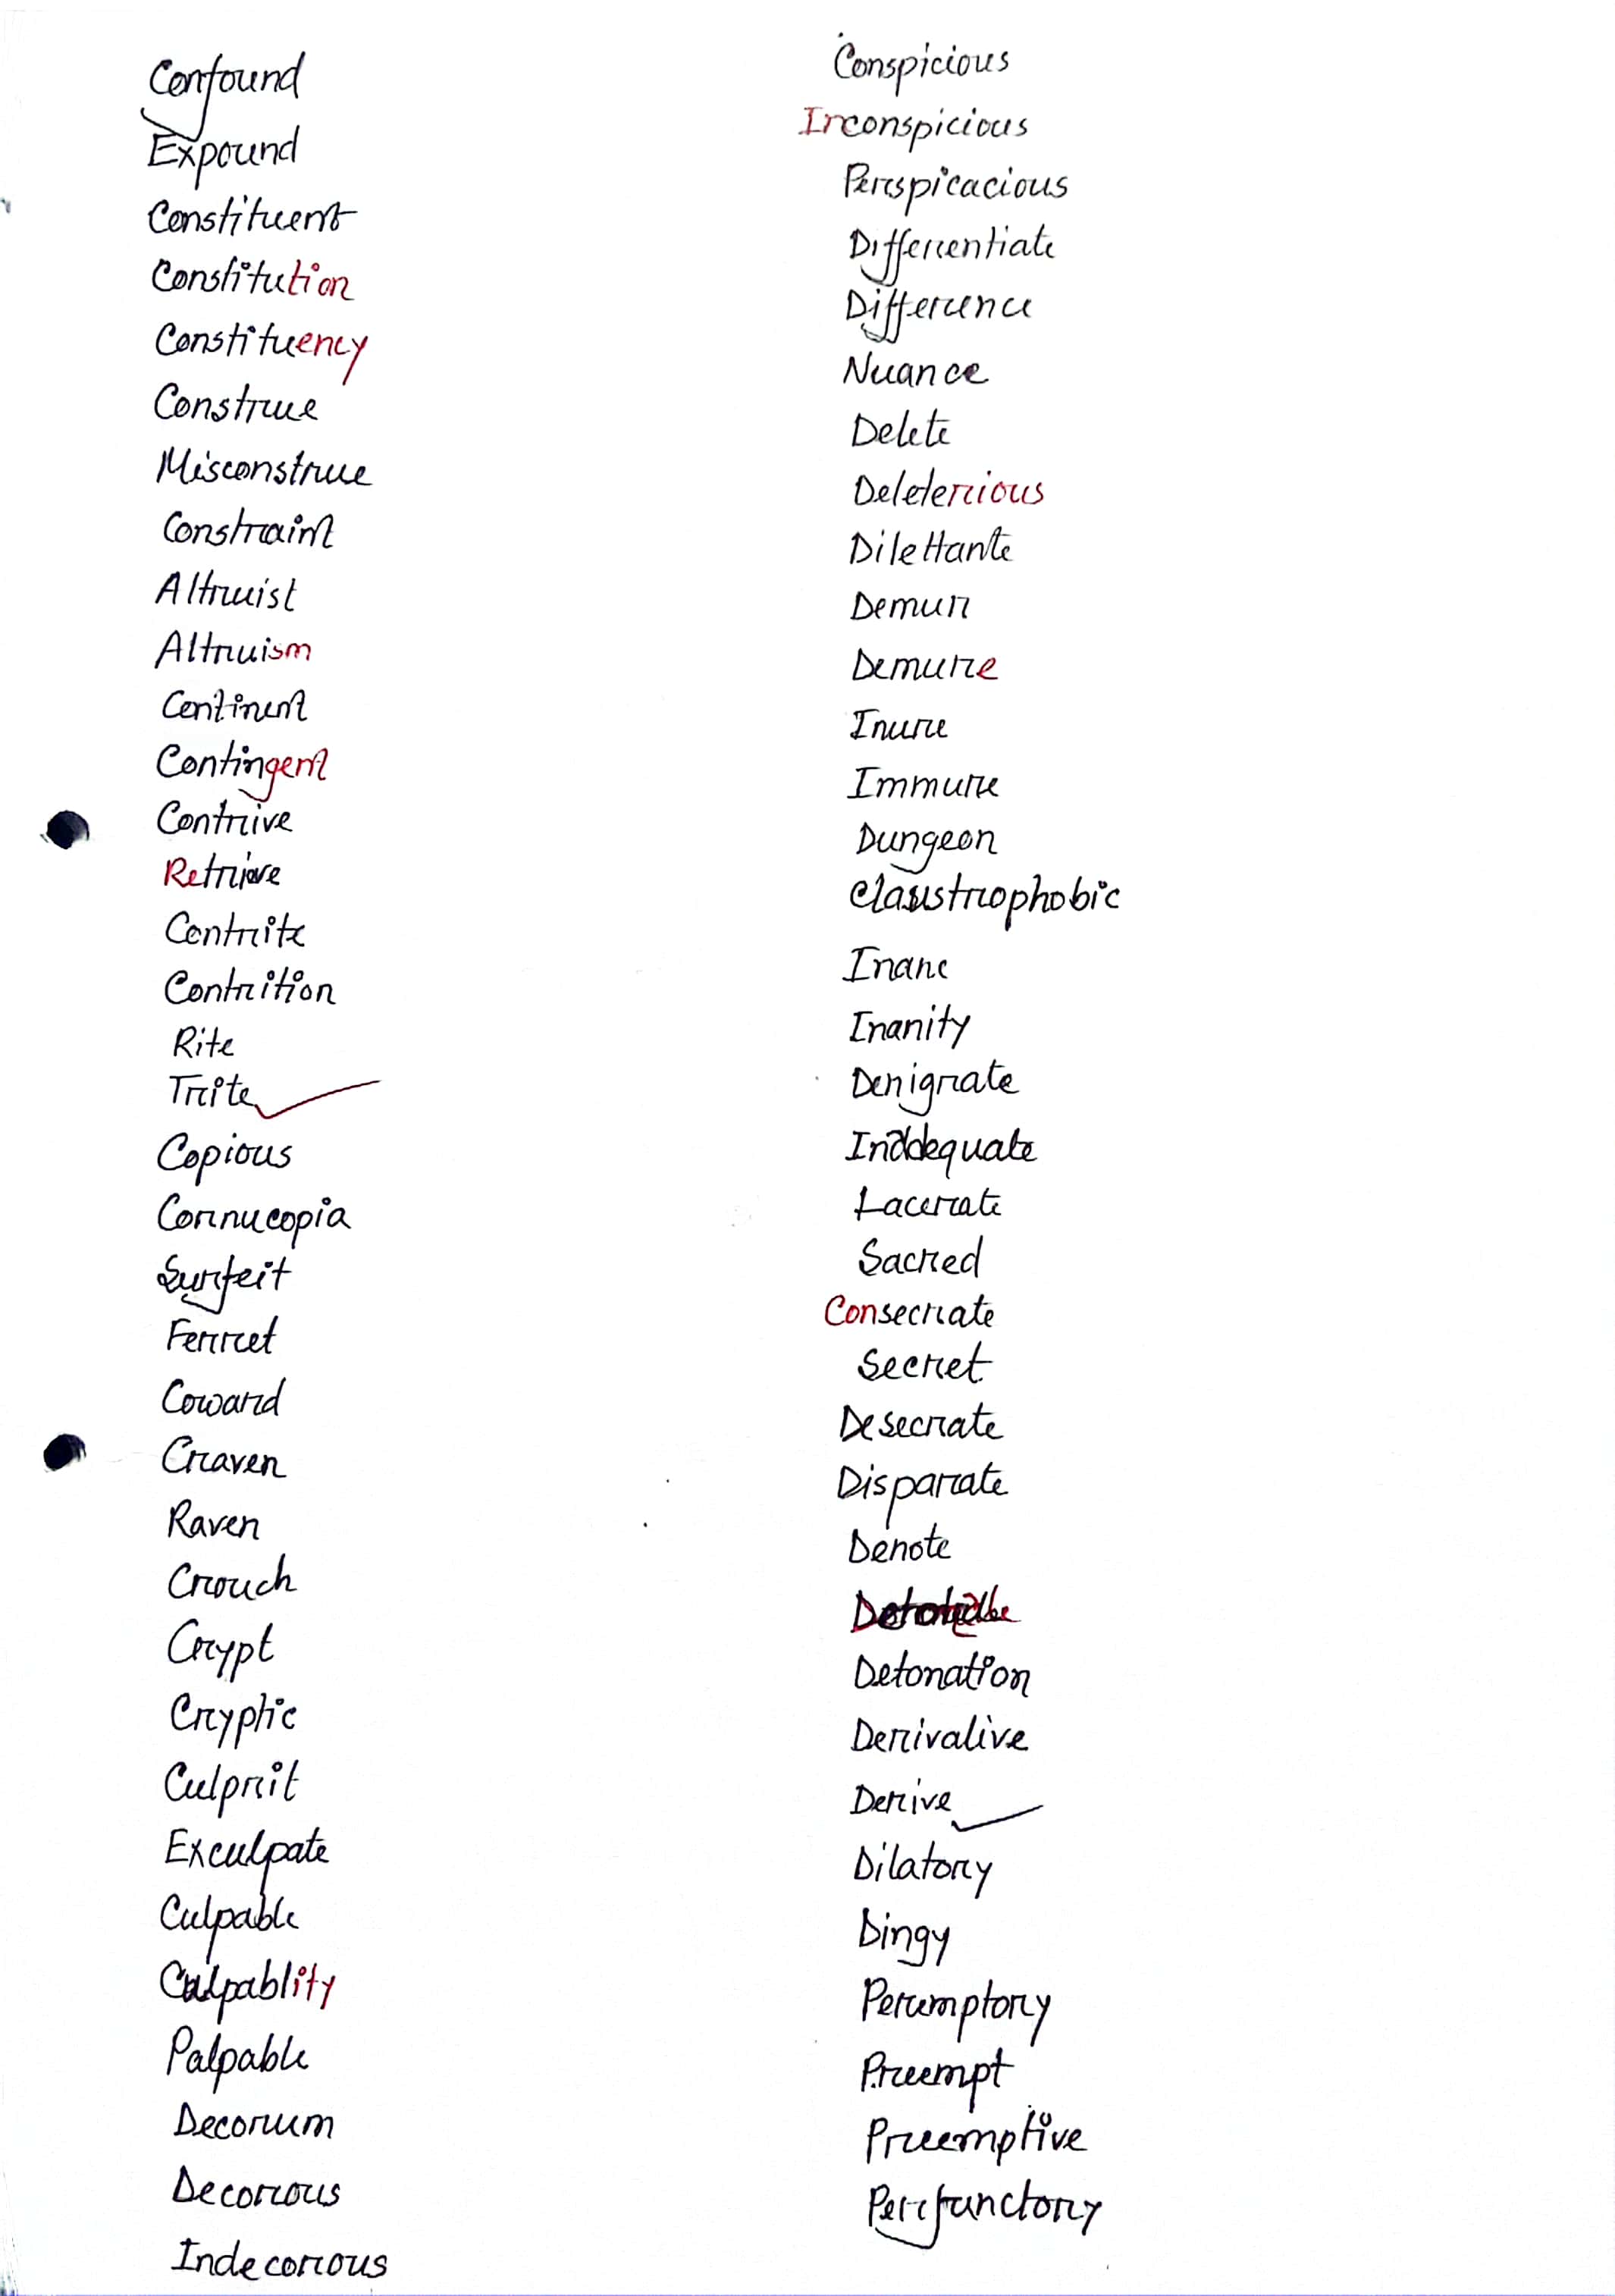 Confound
Expound
Constituent
Constitution
Constituency
Construe
Misconstrue
Constraint
Altruist
Altruism
Continent
Contingent
Contrive
Retrieve
Contrite
Contrition
Rite
Trite
Copious
Cornucopia
Surfeit
Ferret
Coward
Craven
Raven
Crouch
Crypt
Cryptic
Culprit
Exculpate
Culpable
Culpablity
Palpable
Decorum
Decorous
Indecorous
Conspicious
Inconspicious
Perspicacious
Differentiate
Difference
Nuance
Delete
Deleterious
Dilettante
Demur
Demure
Inure
Immune
Dungeon
Claustrophobic
Inane
Inanity
Denigrate
Inadequate
Lacerate
Sacred
Consecrate
Secret
Desecrate
Disparate
Denote
Detonation
Derivative
Derive
Dilatory
Dingy
Peremptory
Preempt
Preemptive
Perfunctory